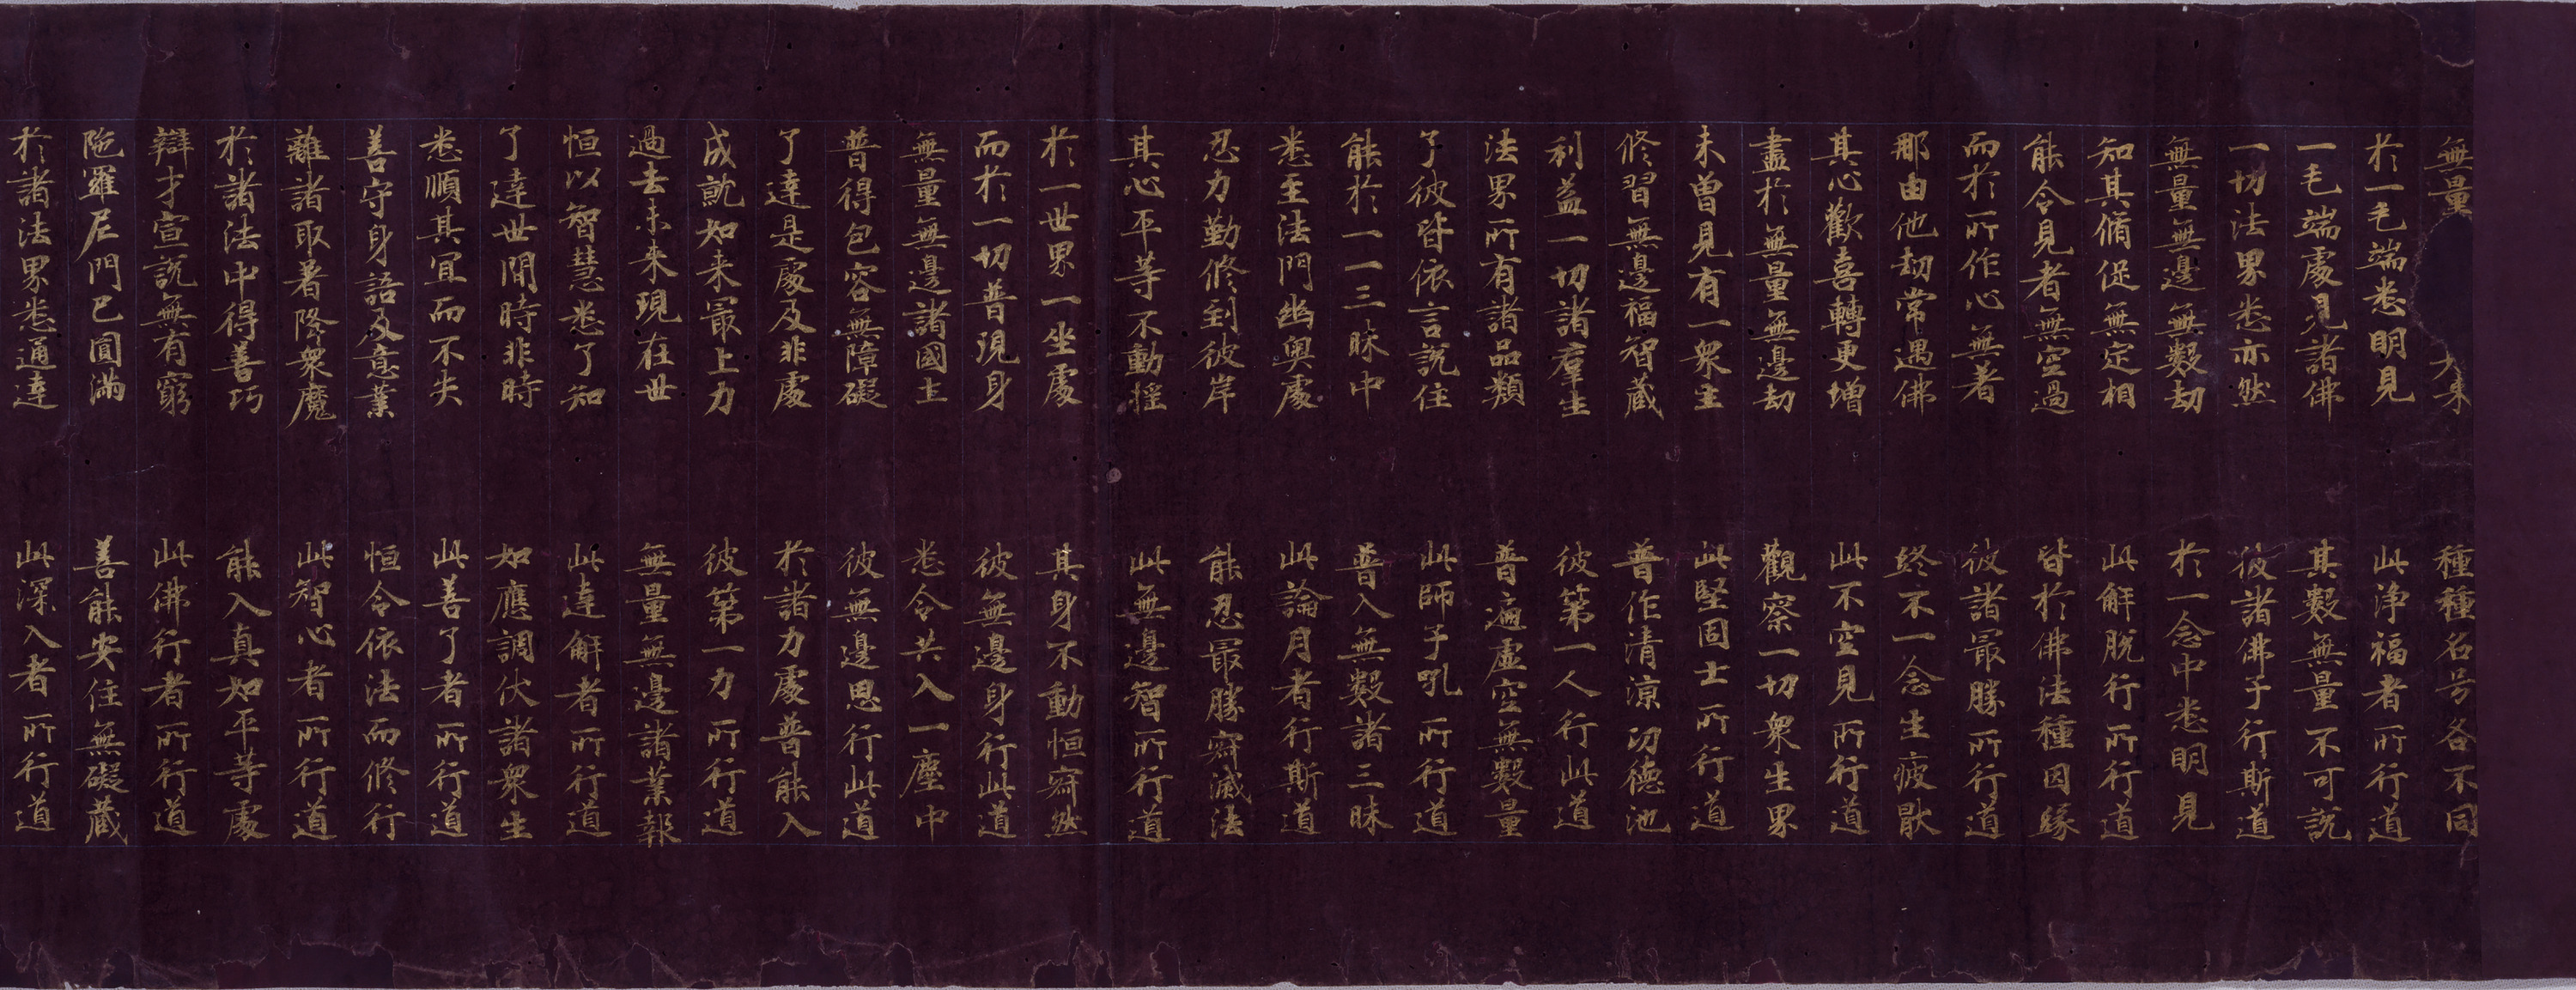 無量 來 種種名号各不同
於一毛端悉明見 此淨福者所行道
一毛端處見諸佛 其數無量不可說
一切法界悉亦然 彼諸佛子行斯道
無量無邊無數劫 於一念中悉明見
知其脩促無定相 此解脫行所行道
能令見者無空過 皆於佛法種因緣
而於所作心無著 彼諸冣勝所行道
那由他劫常遇佛 終不一念生疲厭
其心歡喜轉更增 此不空見所行道
盡於無量無邊劫 觀察一切衆生界
未曾見有一衆生 此堅固士所行道
修習無邊福智藏 普作清涼功德池
利益一切諸羣生 彼第一人行此道
法界所有諸品類 普遍虛空無數量
了彼皆依言說住 此師子吼所行道
能於一一三昧中 普入無數諸三昧
悉至法門幽奧處 此論月者行斯道
忍力勤修到彼岸 能忍冣勝寂滅法
其心平等不動搖 此無邊智所行道
於一世界一坐處 其身不動恒寂然
而於一切普現身 彼無邊身行此道
無量無邊諸國土 悉令共入一塵中
普得包容無障礙 彼無邊思行此道
了達是處及非處 於諸力處普能入
成就如来冣上力 彼第一力所行道
過去未来現在世 無量無邊諸業報
恒以智慧悉了知 此達解者所行道
了達世間時非時 如應調伏諸衆生
悉順其宜而不失 此善了者所行道
善守身語及意業 恒令依法而修行
離諸取著降衆魔 此智心者所行道
於諸法中得善巧 能入真如平等處
辯才宣說無有窮 此佛行者所行道
陁羅尼門已圓滿 善能安住無礙藏
於諸法界悉通達 此深入者所行道